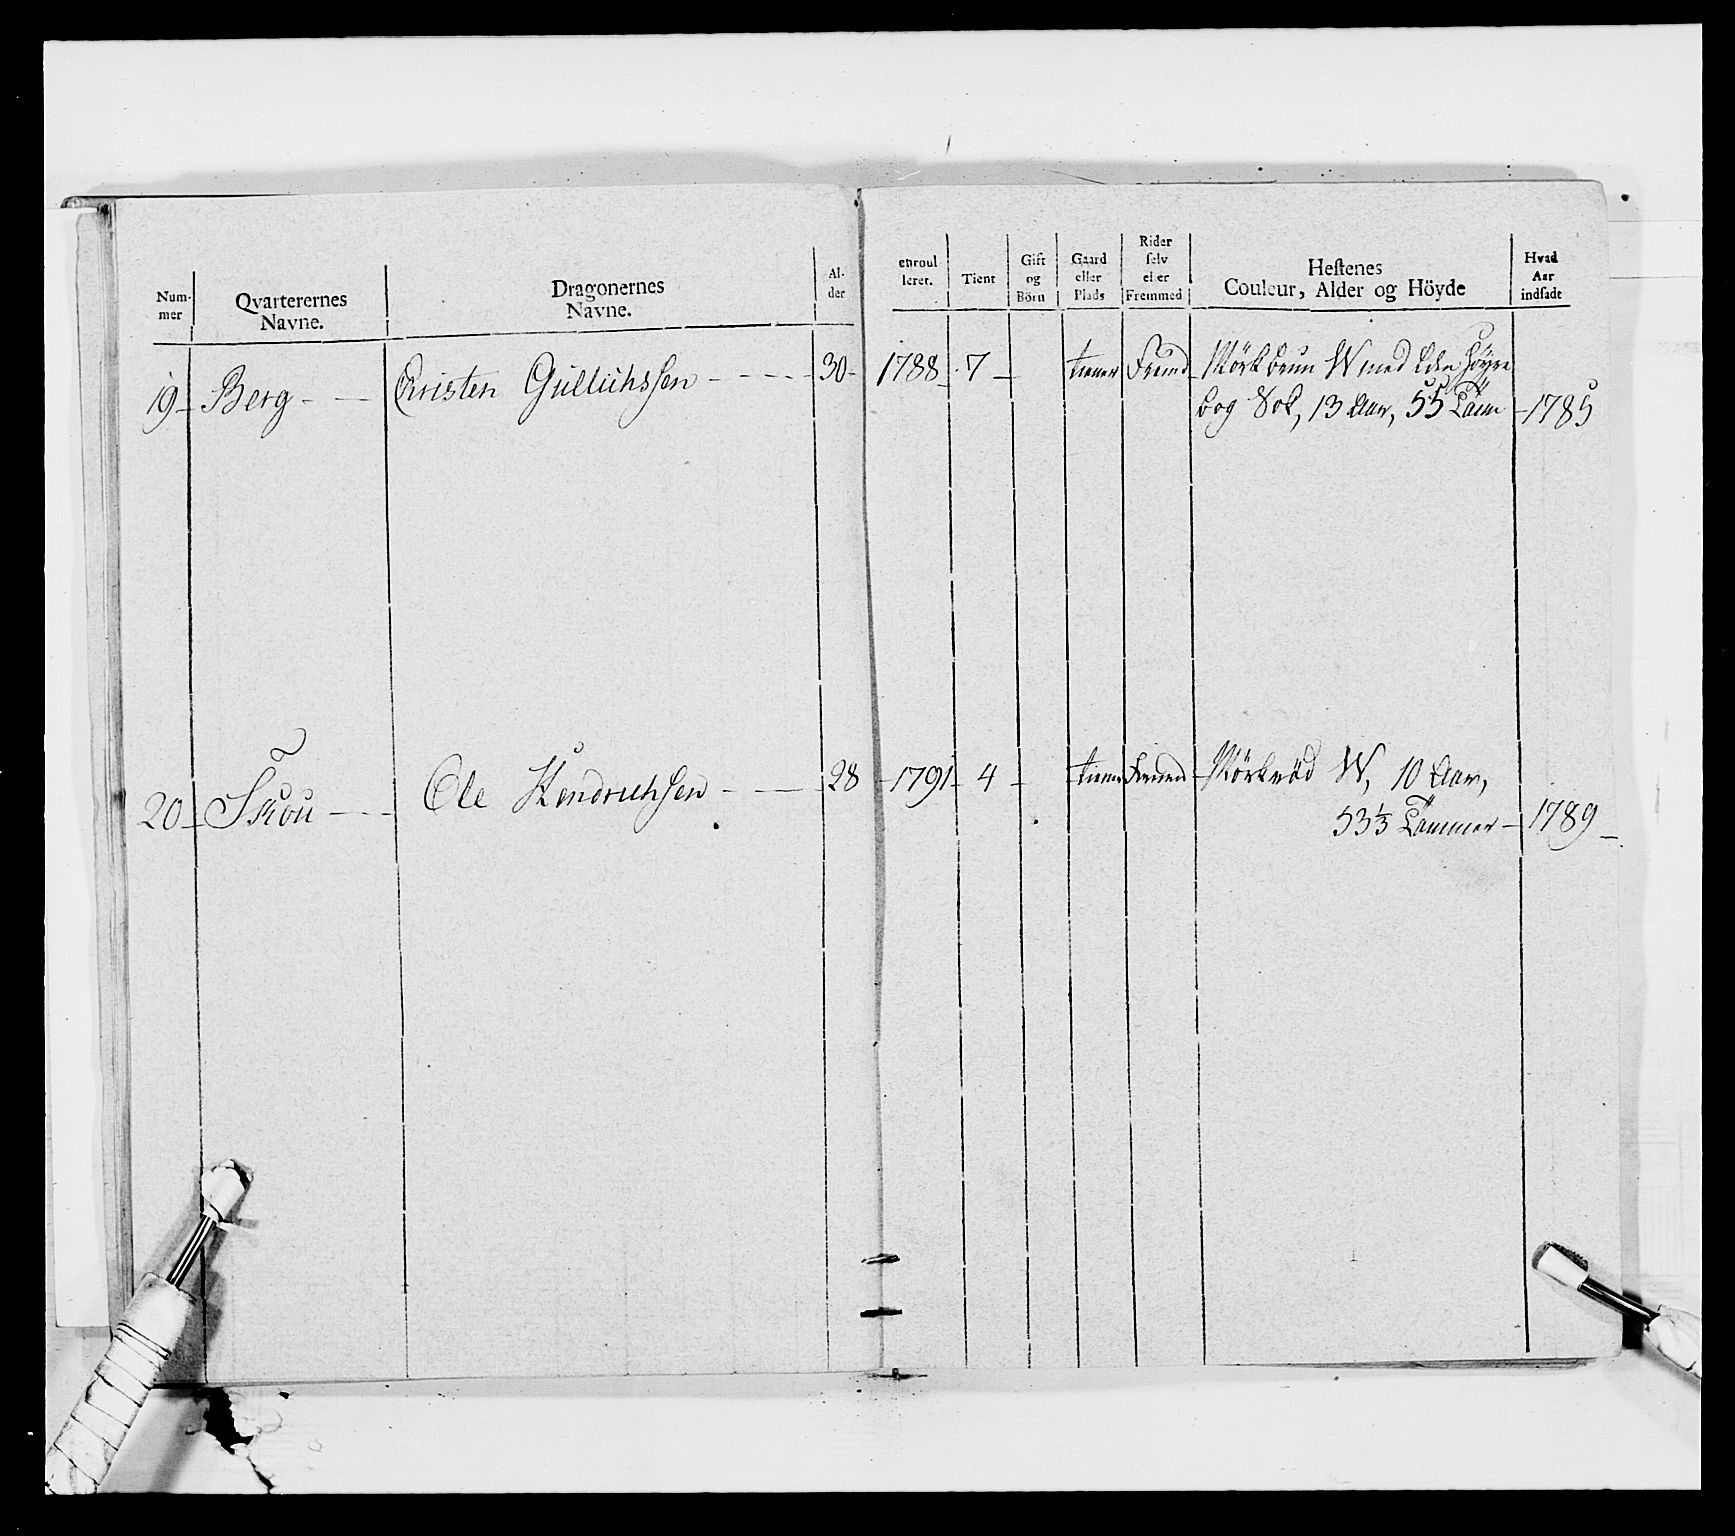 Num-
mer
Qvarterernes
Navne.
Dragonernes
Navne.
Al-
der
enroul
leret.
Tient
Gift
og
Börn
Gaard
eller
Plads
Rider
selv
eller
Fremmed
Hestenes
Couleur, Alder og Höyde
Hvad
Aar
indsadt
19 Berg Christen Gulluchssen 30 1788 7 tiener Fremd Mörk brun W med höyre
bog 13 Aar, 55 Töm 1785
20 Skou Ole Hendrichsen 28 1791 4 tiener Fremed Mörkröd W, 10 Aar,
53 1/3 Tommer 1789